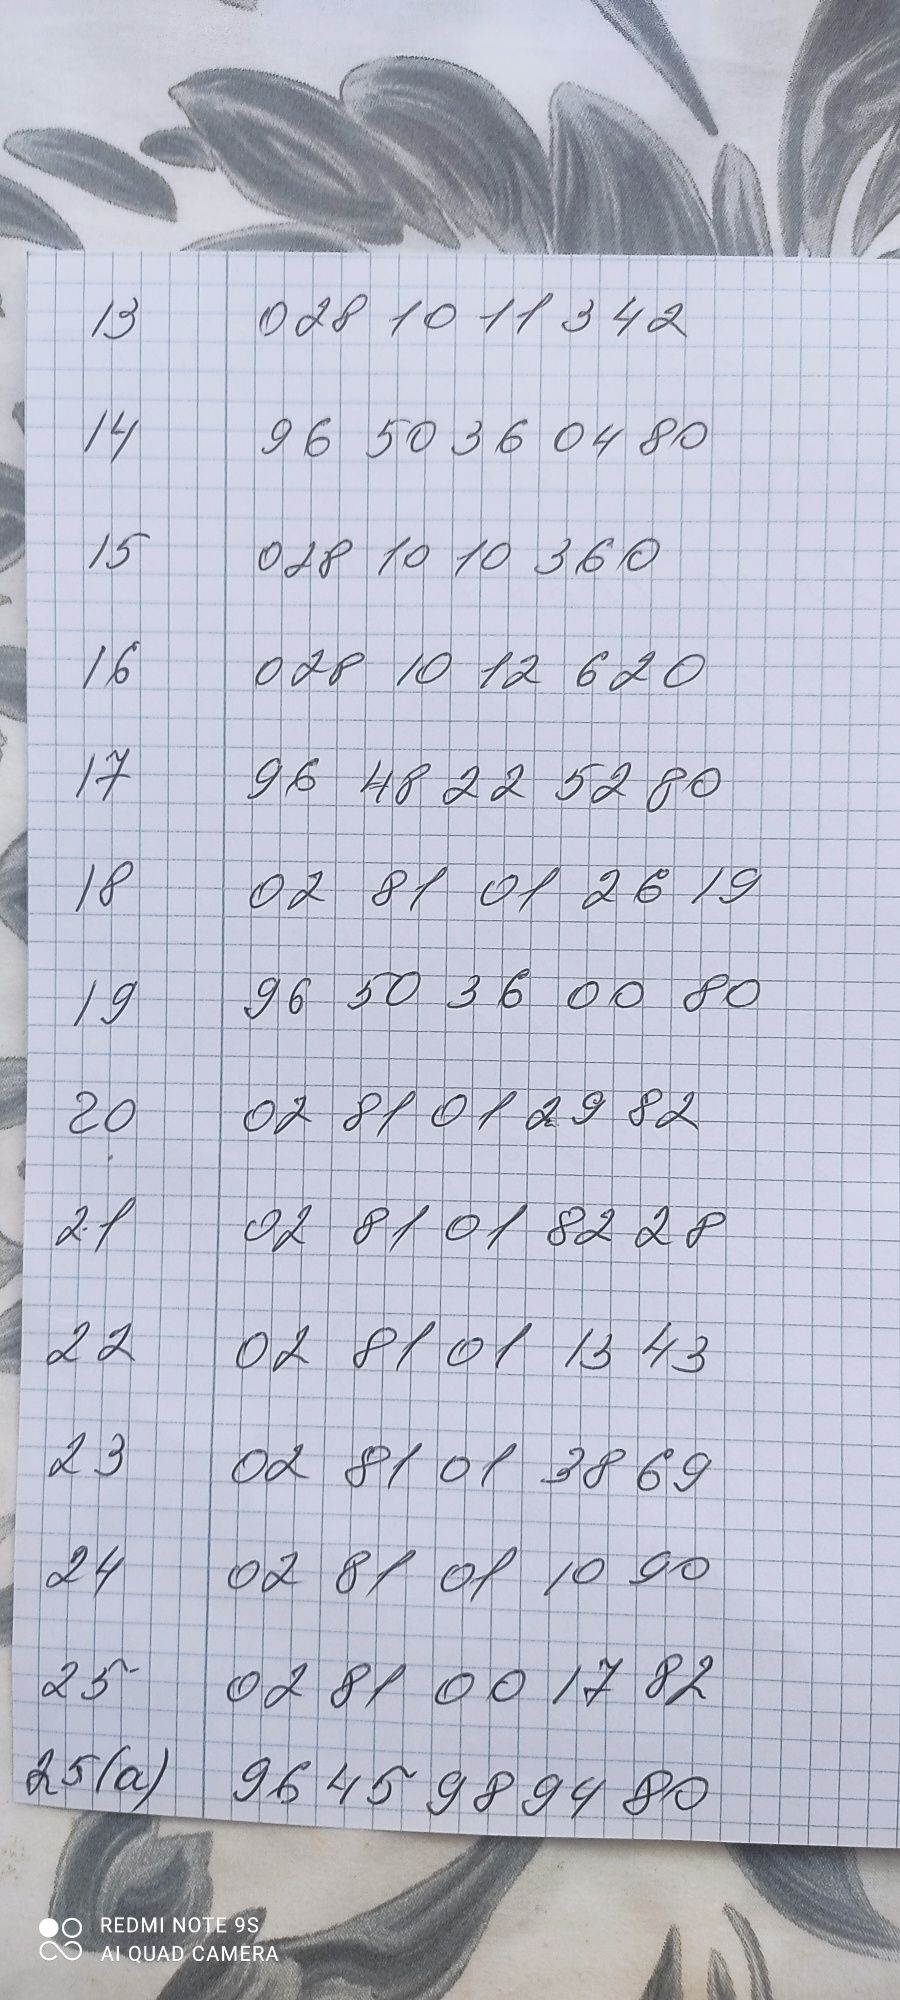 13 028 10 11 342
14 96 50 36 04 80
15 028 10 10 360
16 028 10 12 620
17 96 48 22 52 80
18 02 81 01 26 19
19 96 50 36 00 80
20 02 81 01 29 82
21 02 81 01 82 28
22 02 81 01 13 43
23 02 81 01 38 69
24 02 81 01 10 90
25 02 81 00 17 82
25(а) 96 45 98 94 80
REDMI NOTE 9S
AI QUAD CAMERA